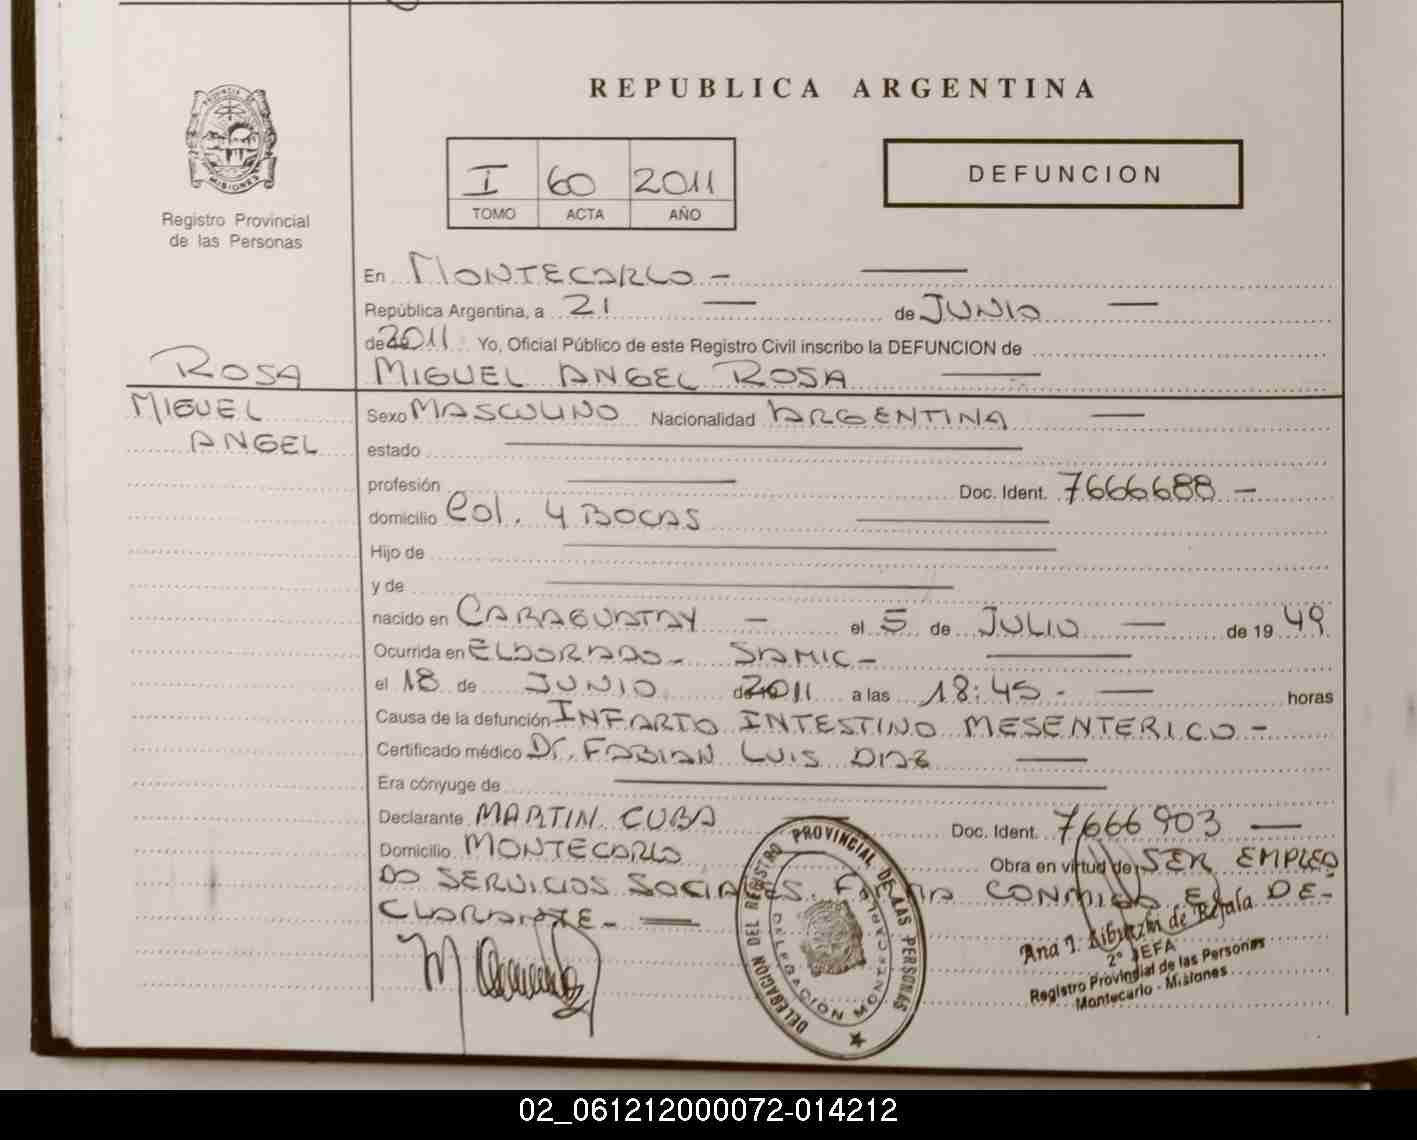 REPUBLICA ARGENTINA
PROVINCIA DE
MISIONES
Registro Provincial
de las Personas
I 60 2011
TOMO ACTA AÑO
DEFUNCION
En MONTECARLO -
República Argentina, a 21 de JUNIO
de 2011 Yo, Oficial Público de este Registro Civil inscribo la DEFUNCION de
ROSA MIGUEL ANGEL ROSA
MIGUEL
ANGEL
Sexo MASCULINO Nacionalidad ARGENTINA
estado
profesión Doc. Ident. 7666688 -
domicilio Col. 4 BOCAS
Hijo de
y de
nacido en CARAGUATAY - el 5 de JULIO de 19 49
Ocurrida en ELDORADO - SAMIC -
el 18 de JUNIO de 2011 a las 18:45 - horas
Causa de la defunción INFARTO INTESTINO MESENTERICO -
Certificado médico Dr. FABIAN LUIS DIAZ
Era cónyuge de
Declarante MARTIN CUBA Doc. Ident. 7666903
Domicilio MONTECARLO Obra en virtud de SER EMPLEA
DO SERVICIOS SOCIALES. FIRMA CONMIGO EL DE-
CLARANTE -
DELEGACION DEL REGISTRO PROVINCIAL DE LAS PERSONAS
DELEGACION MONTECARLO
2° JEFA
Registro Provincial de las Personas
Montecarlo - Misiones
02_061212000072-014212